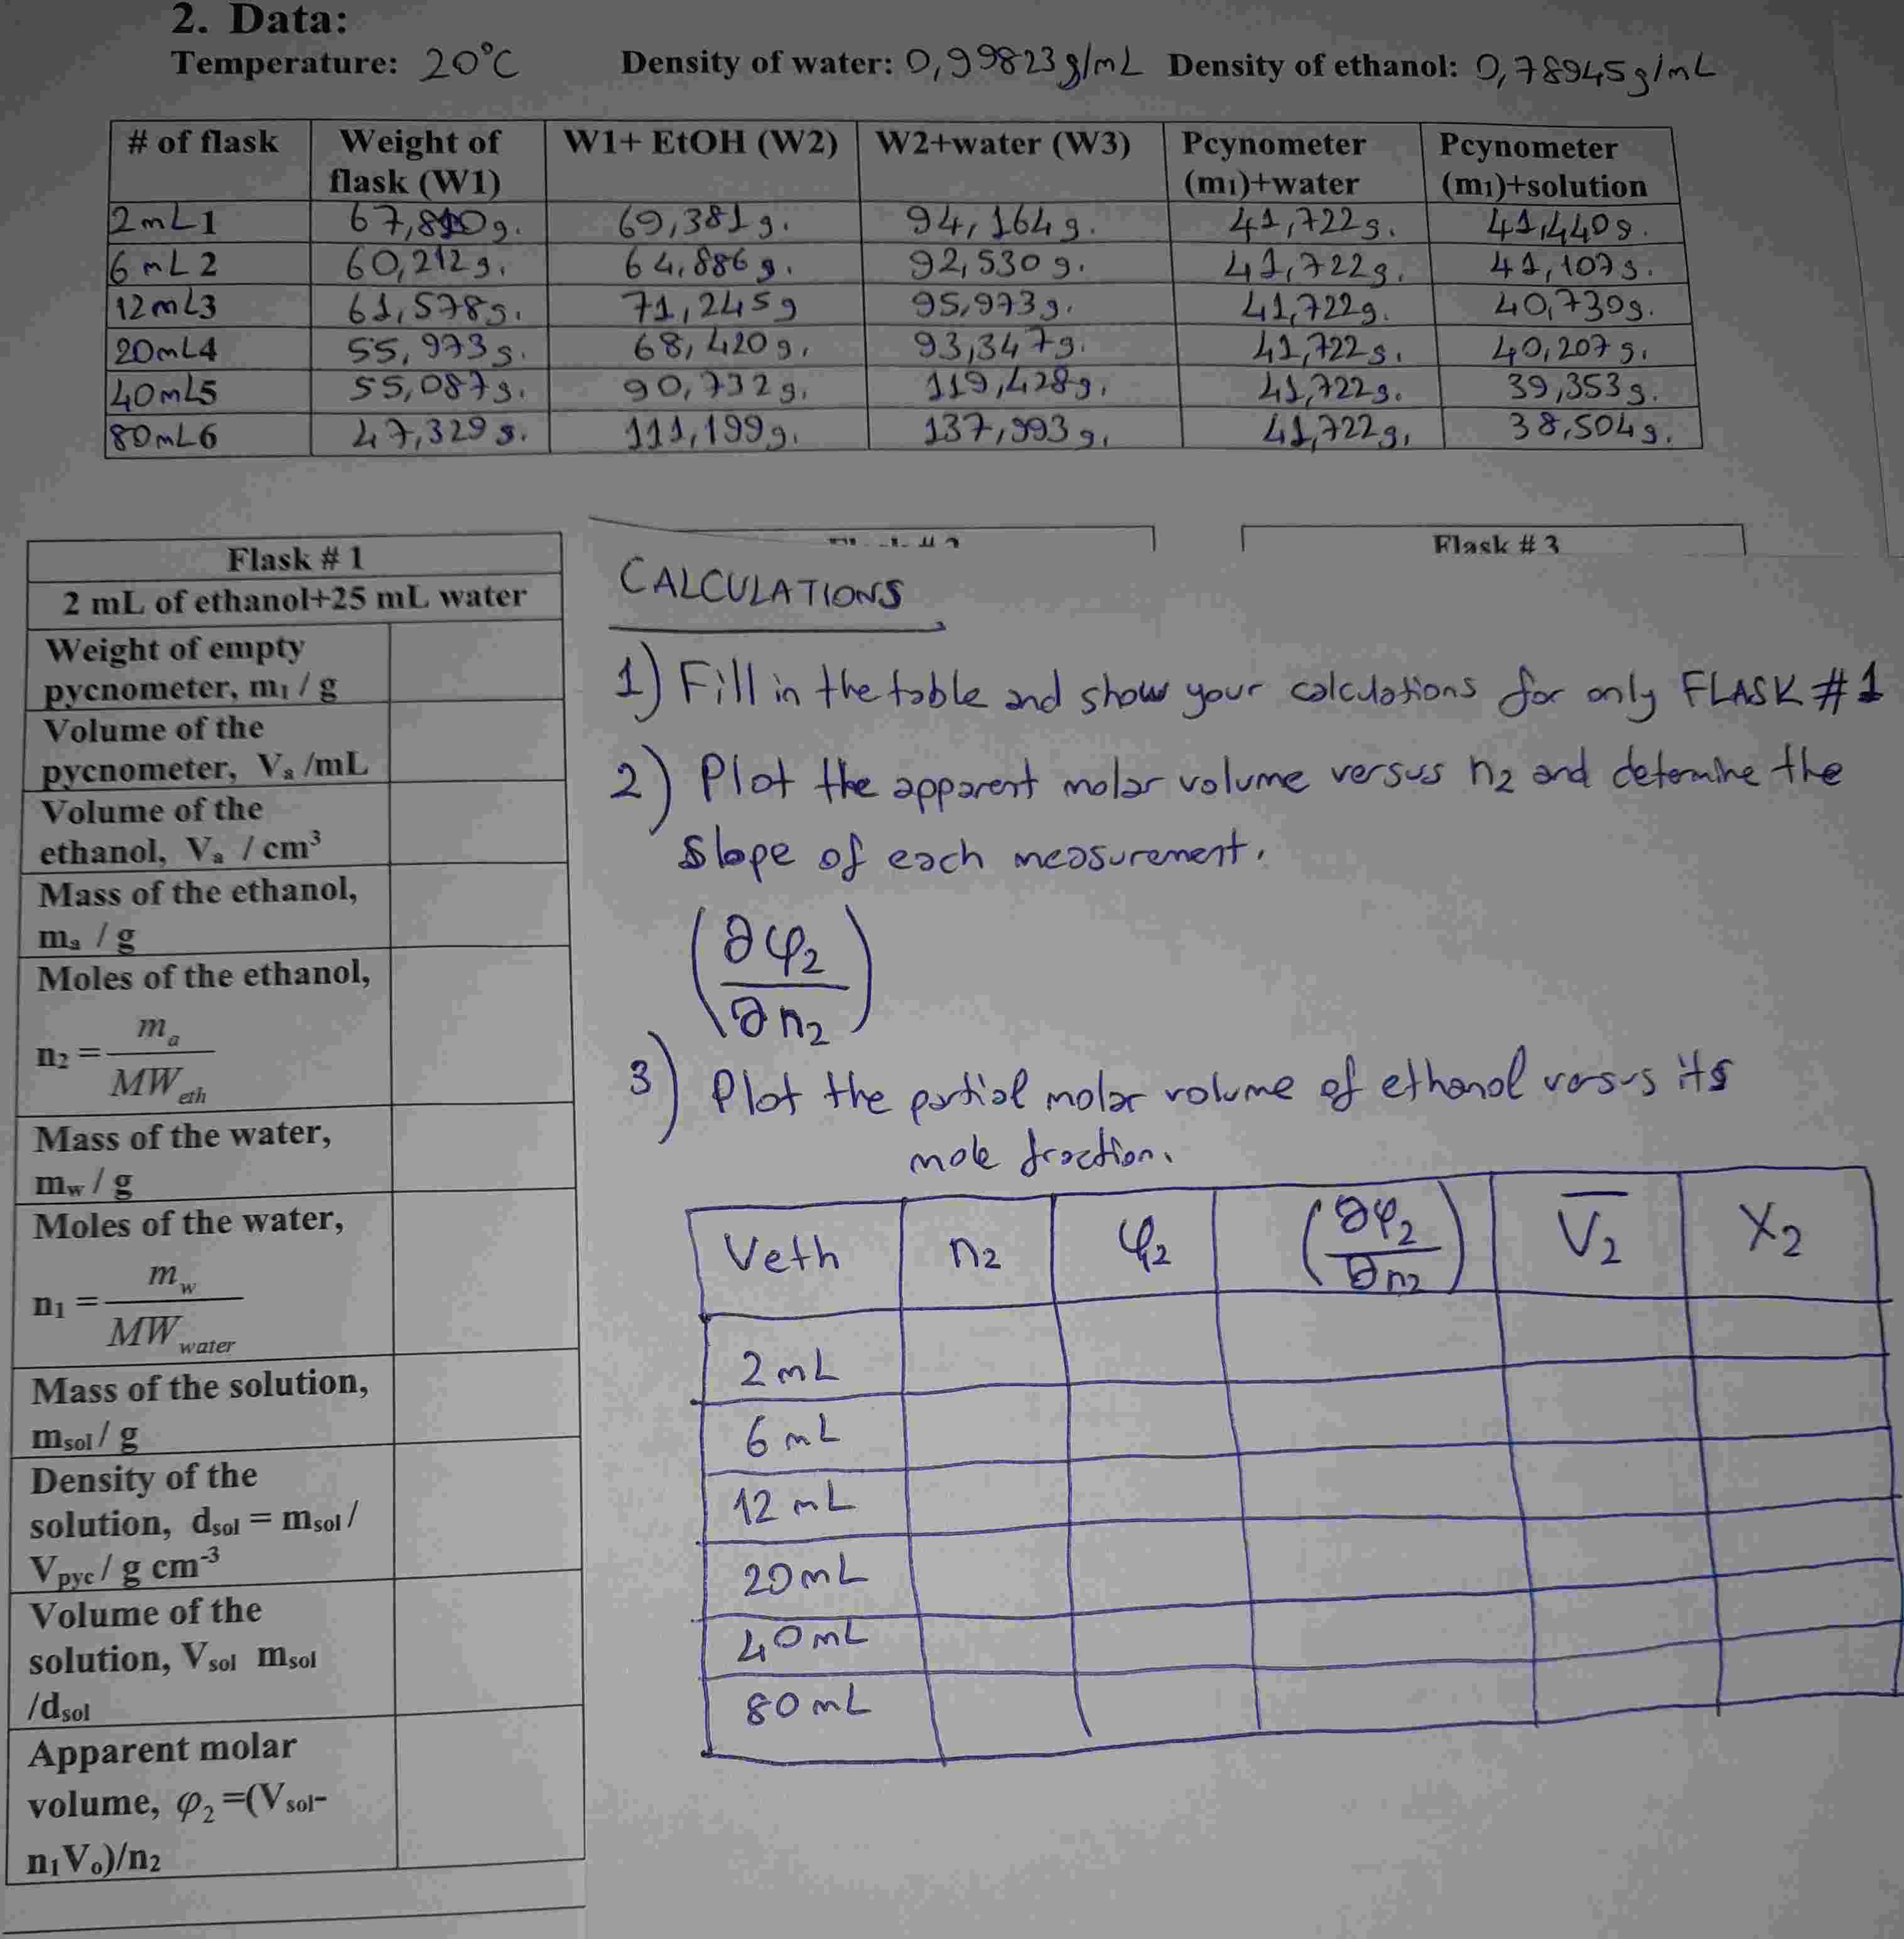 2. Data:
Temperature: 20°C Density of water: 0,99823g/mL Density of ethanol: 0,78945g/mL
# of flask Weight of flask (W1) W1+ EtOH (W2) W2+water (W3) Pcynometer (m1)+water Pcynometer (m1)+solution
2mL1 69,381g. 94,164g. 41,722g. 41,440g.
6mL2 60,212g. 64,886g. 92,530g. 41,722g. 41,107g.
12mL3 61,578g. 71,245g 95,973g. 41,722g. 40,730g.
20mL4 55,973g. 68,420g. 93,347g. 41,722g. 40,207g.
40mL5 55,087g. 90,732g. 119,428g. 41,722g. 39,353g.
80mL6 47,329g. 111,199g. 137,993g. 41,722g. 38,504g.
Flask # 3
Flask # 1
2 mL of ethanol+25 mL water
Weight of empty
pycnometer, m1 / g
Volume of the
pycnometer, Va /mL
Volume of the
ethanol, Va / cm³
Mass of the ethanol,
ma / g
Moles of the ethanol,
n2 = ma / MWeth
Mass of the water,
mw / g
Moles of the water,
n1 = mw / MWwater
Mass of the solution,
msol / g
Density of the
solution, dsol = msol /
Vpyc / g cm⁻³
Volume of the
solution, Vsol msol
/dsol
Apparent molar
volume, φ2 =(Vsol-
n1Vo)/n2
CALCULATIONS
1) Fill in the table and show your calculations for only FLASK #1
2) Plot the apparent molar volume versus n2 and determine the
slope of each measurement.
(∂φ2/∂n2)
3) Plot the partial molar volume of ethanol versus its
mole fraction.
Veth n2 φ2 (∂φ2/∂n2) V̅2 X2
2 mL
6 mL
12 mL
20 mL
40 mL
80 mL